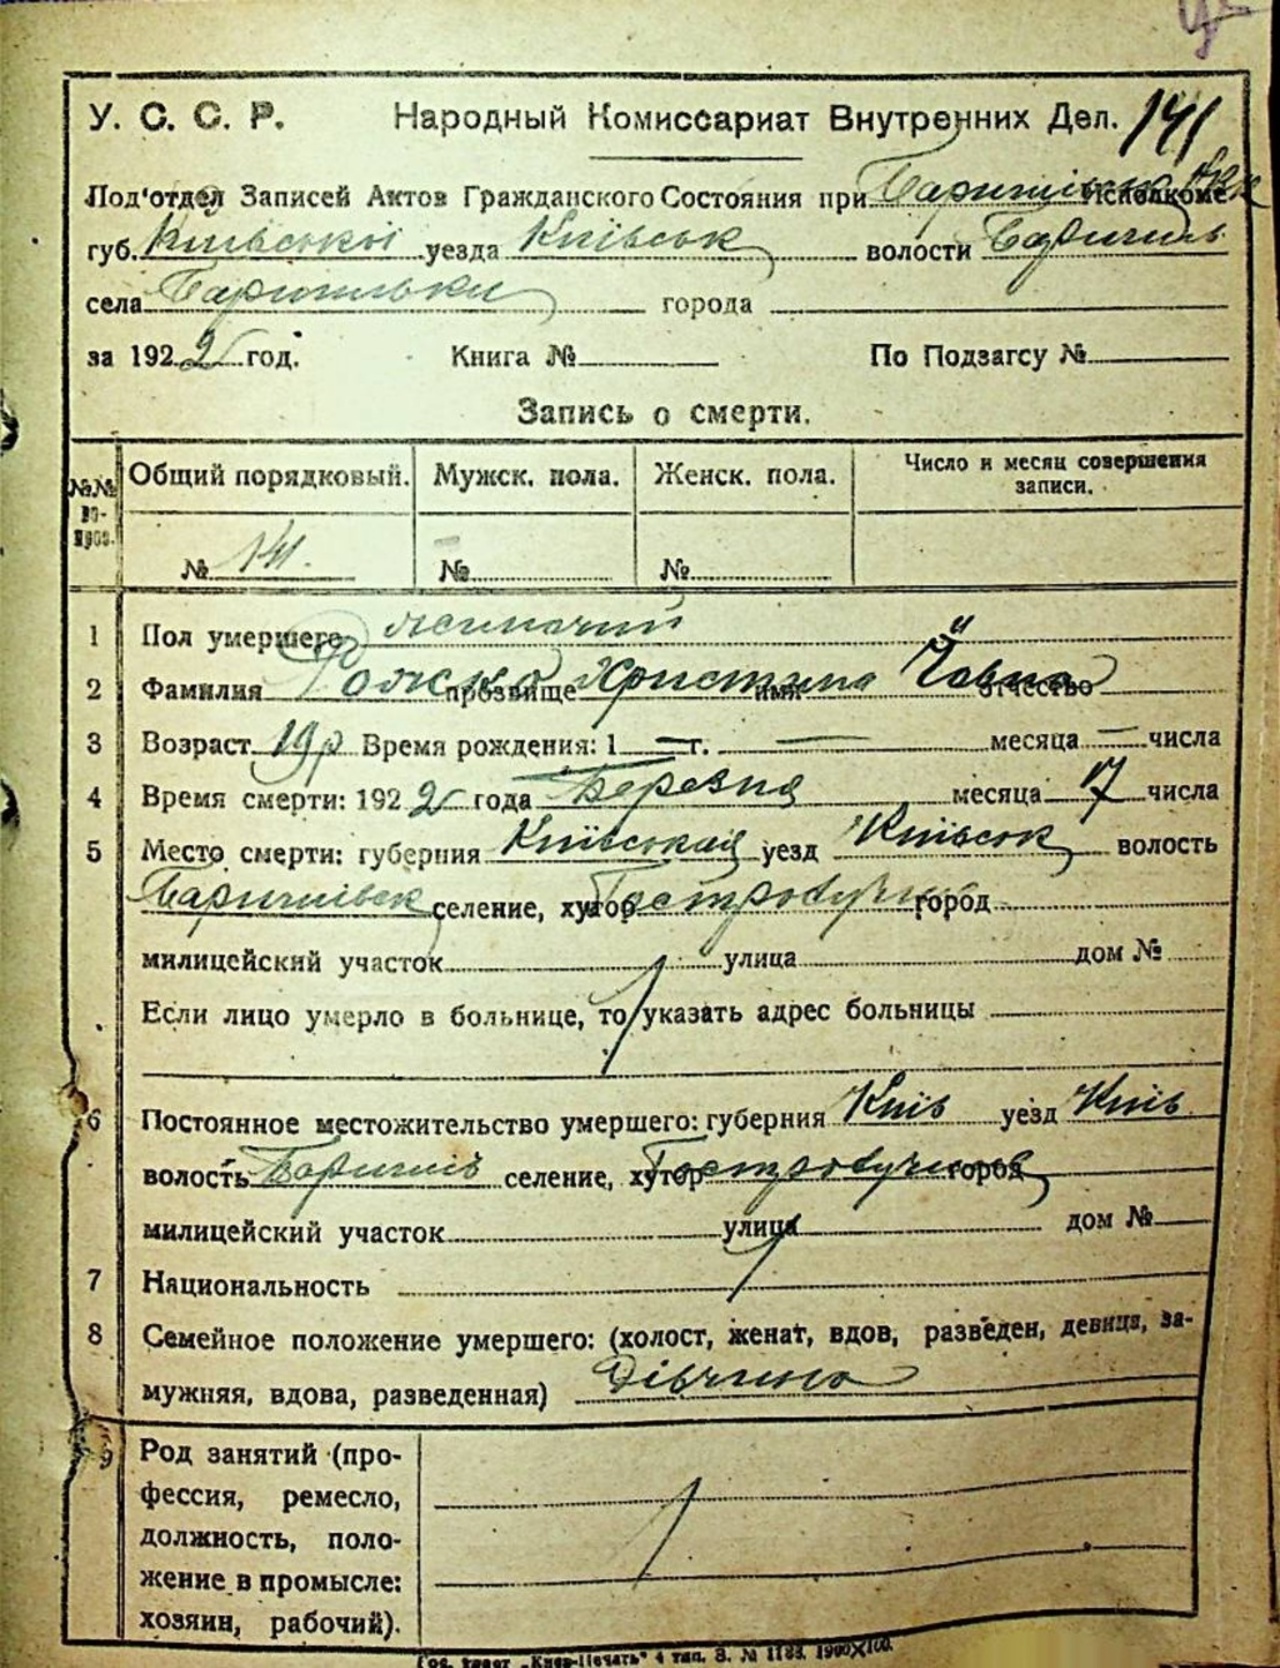 У. С. С. Р. Народный Комиссариат Внутренних Дел. 141
Под'отдел Записей Актов Гражданского Состояния при Исполкоме
губ. Київської уезда Київськ волости Баришів
села Баришівки города
за 1922 год. Книга № По Подзагсу №
Запись о смерти.
№№ во- прос. Общий порядковый. Мужск. пола. Женск. пола. Число и месяц совершения записи.
№ 141. № №
1 Пол умершего жиночий
2 Фамилия прозвище Христина имя отчество
3 Возраст 19 р Время рождения: 1 — г. — месяца — числа
4 Время смерти: 1922 года Березня месяца 17 числа
5 Место смерти: губерния Київская уезд Київськ волость
Баришівск селение, хутор город
милицейский участок улица дом №
Если лицо умерло в больнице, то указать адрес больницы
6 Постоянное местожительство умершего: губерния Київ уезд Київ
волость Баришів селение, хутор город
милицейский участок улица дом №
7 Национальность
8 Семейное положение умершего: (холост, женат, вдов, разведен, девица, за-
мужняя, вдова, разведенная) Дівчина
9 Род занятий (про-
фессия, ремесло,
должность, поло-
жение в промысле:
хозяин, рабочий).
Гос. трест „Киев-Печать" 4 тип. З. № 1188. 1900×100.